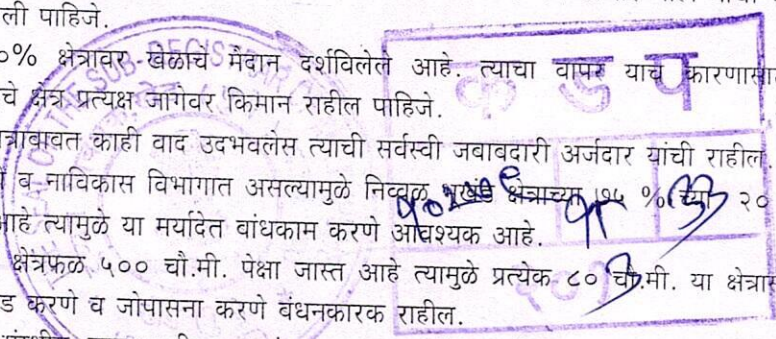 ली पाहिजे.
०% क्षेत्रावर खेळाचे मैदान दर्शविलेले आहे. त्याचा वापर याच कारणासा
चे क्षेत्र प्रत्यक्ष जागेवर किमान राहील पाहिजे.
त्राबाबत काही वाद उदभवलेस त्याची सर्वस्वी जबाबदारी अर्जदार यांची राहील
व नाविकास विभागात असल्यामुळे निव्वळ भूखंड क्षेत्राच्या ७५ % च्या २०
आहे त्यामुळे या मर्यादेत बांधकाम करणे आवश्यक आहे.
क्षेत्रफळ ५०० चौ.मी. पेक्षा जास्त आहे त्यामुळे प्रत्येक ८० चौ.मी. या क्षेत्रास
ड करणे व जोपासना करणे बंधनकारक राहील.
SUB-REGISTRAR
क ड प